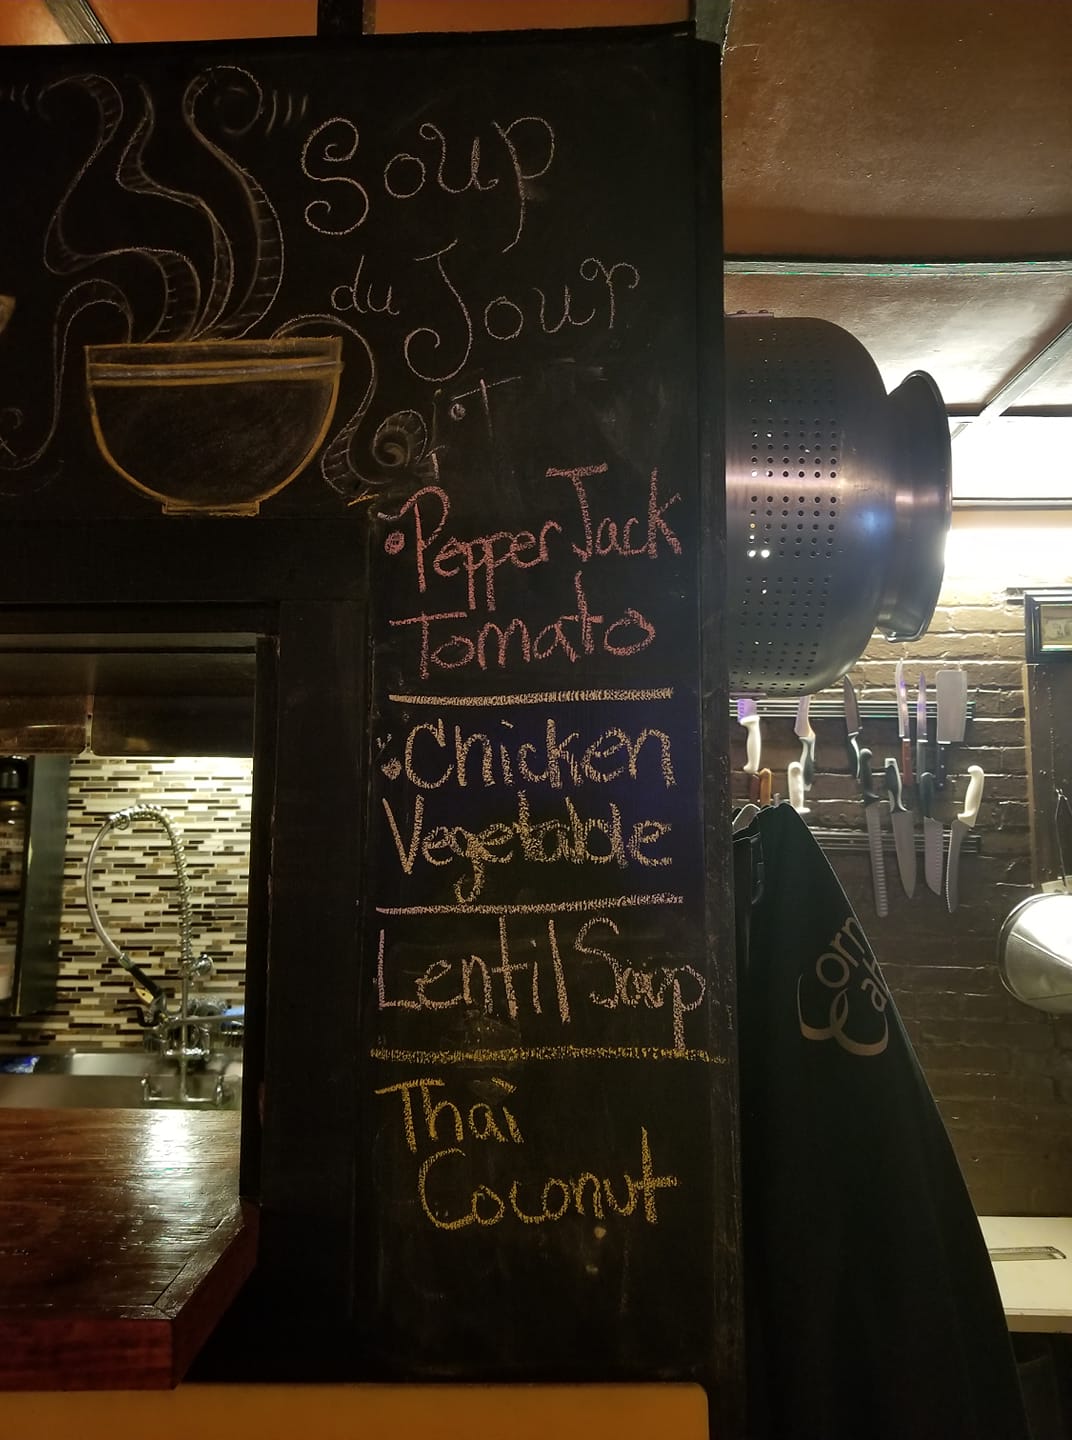 Soup
du Jour
Pepper Jack
Tomato
Chicken
Vegetable
Lentil Soup
Thai
Coconut